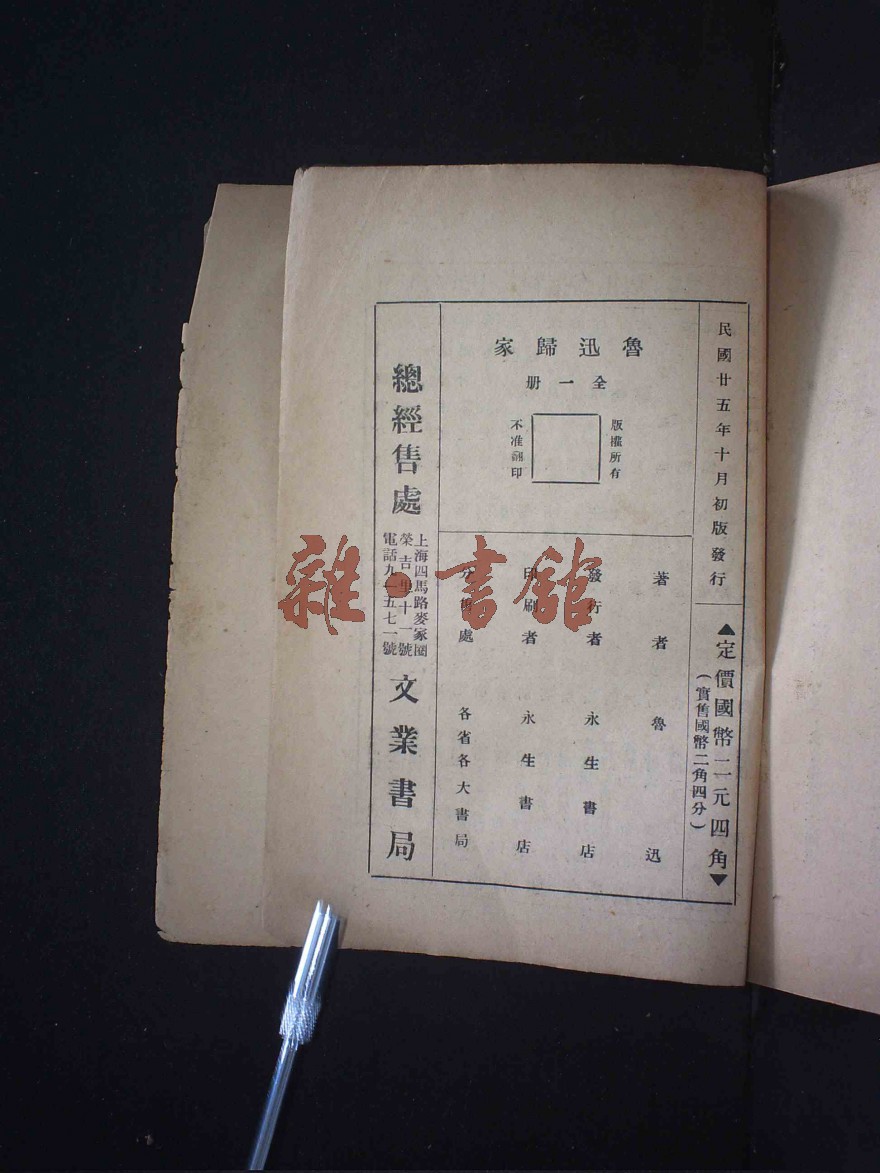 民國廿五年十月初版發行
▲定價國幣二元四角▼
(實售國幣二角四分)
魯迅歸家
全一册
版權所有
不准翻印
著者 魯迅
發行者 永生書店
印刷者 永生書店
分售處 各省各大書局
總經售處
上海四馬路麥家圈
榮吉里十一號
電話九一五七一號
文業書局
雜·書館